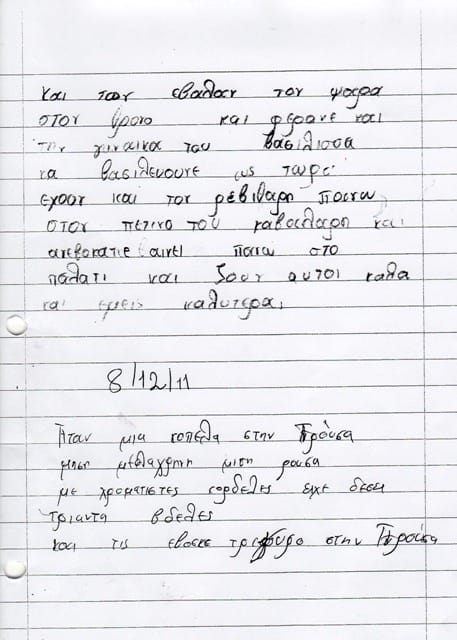 και τον εβαλαν τον ψαρα
στον θρονο και φερανε και
την γυναικα του βασιλισσα
κα βασιλευουνε ως τωρα
εχουν και τον ρεβιθαρη πανω
στον πετινο του καβαλαρη και
πανω στο
παλατι και ζουν αυτοι καλα
και εμεις καλυτερα
8/12/11
Ηταν μια κοπελα στην Προυσα
μιση μελαχρηνη μιση ρουσα
με χρωματιστες κορδελες ειχε δεσει
τριαντα βδελες
και τις εβοσκε τριγυρο στην Προυσα